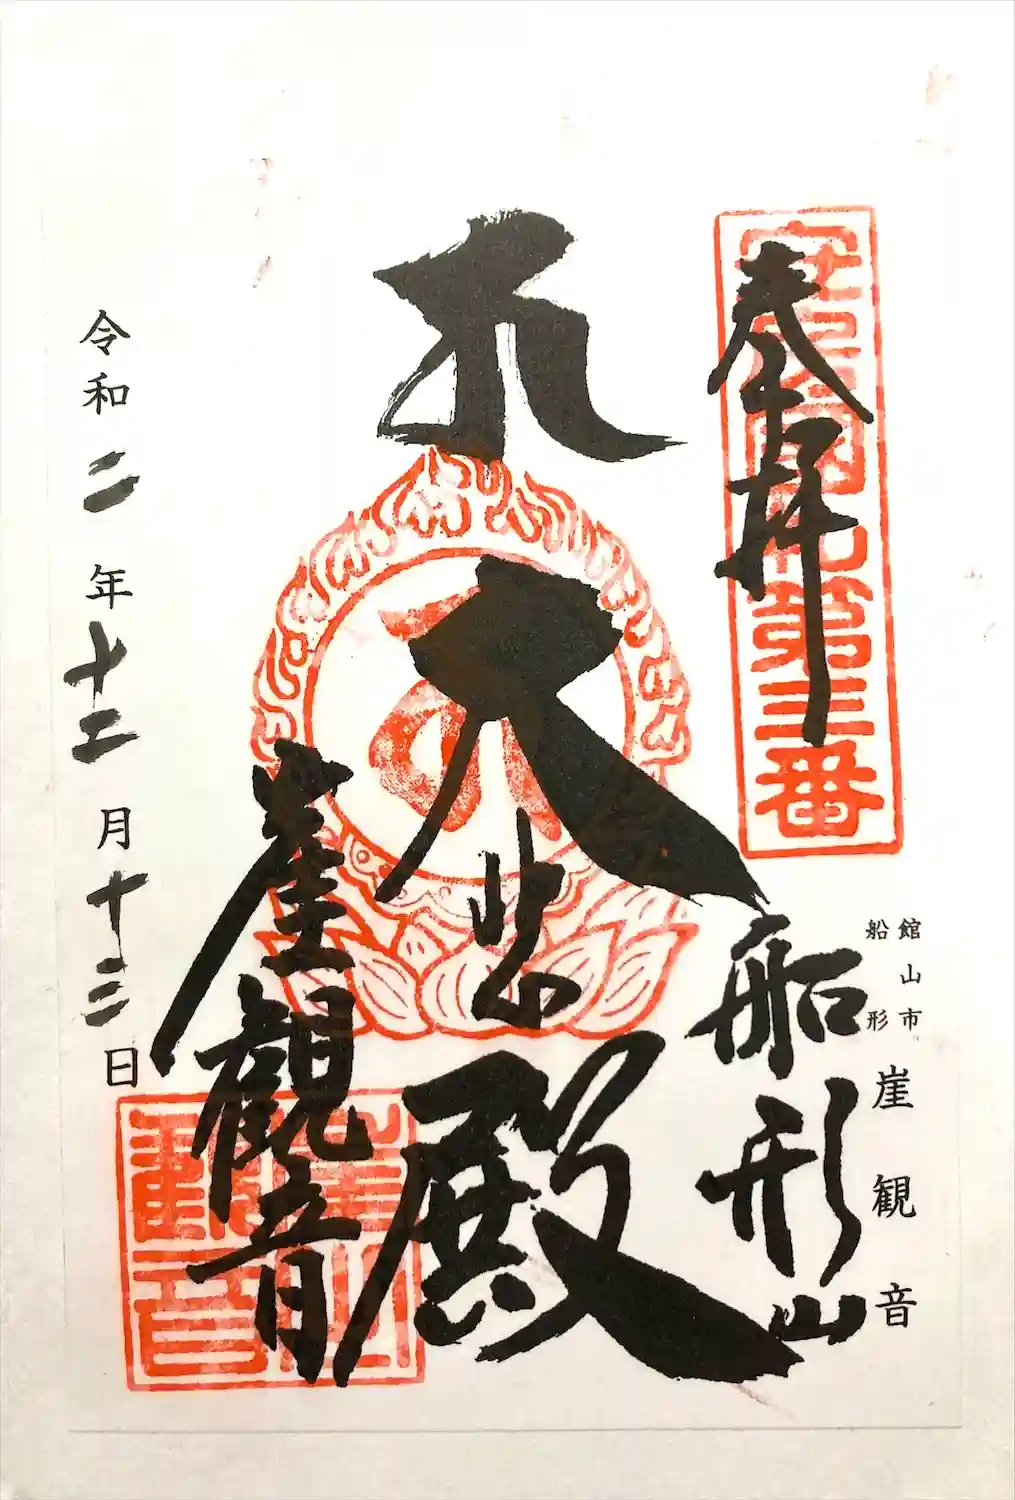 奉拝
安房國札第三番
館山市
船形
崖観音
船形山
大悲殿
崖觀音
令和二年十二月十三日